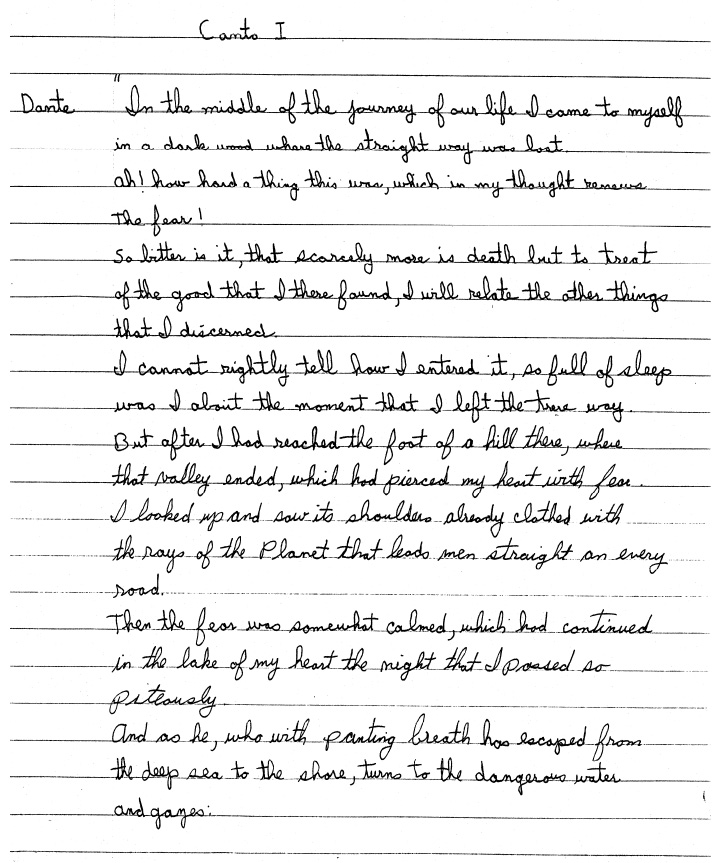 Canto I
Dante "In the middle of the journey of our life I came to myself
in a dark wood where the straight way was lost.
ah! how hard a thing this was, which in my thought renews
the fear!
So bitter is it, that scarcely more is death but to treat
of the good that I there found, I will relate the other things
that I discerned.
I cannot rightly tell how I entered it, so full of sleep
was I about the moment that I left the true way.
But after I had reached the foot of a hill there, where
that valley ended, which had pierced my heart with fear.
I looked up and saw its shoulders already clothed with
the rays of the Planet that leads men straight on every
road.
Then the fear was somewhat calmed, which had continued
in the lake of my heart the night that I passed so
piteously.
And as he, who with panting breath has escaped from
the deep sea to the shore, turns to the dangerous water
and gazes: